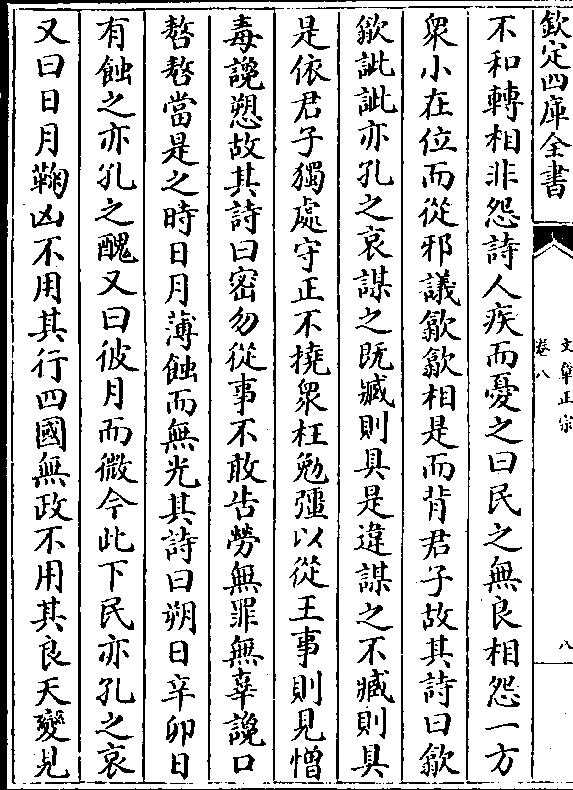 欽定四庫全書
文章正宗
卷八
八
不和轉相非怨詩人疾而憂之曰民之無良相怨一方
衆小在位而從邪議歙歙相是而背君子故其詩曰歙
歙訿訿亦孔之哀謀之既臧則具是違謀之不臧則具
是依君子獨處守正不撓衆枉勉彊以從王事則見憎
毒讒愬故其詩曰密勿從事不敢告勞無罪無辜讒口
嗸嗸當是之時日月薄蝕而無光其詩曰朔日辛卯日
有蝕之亦孔之醜又曰彼月而微今此下民亦孔之哀
又曰日月鞠凶不用其行四國無政不用其良天變見